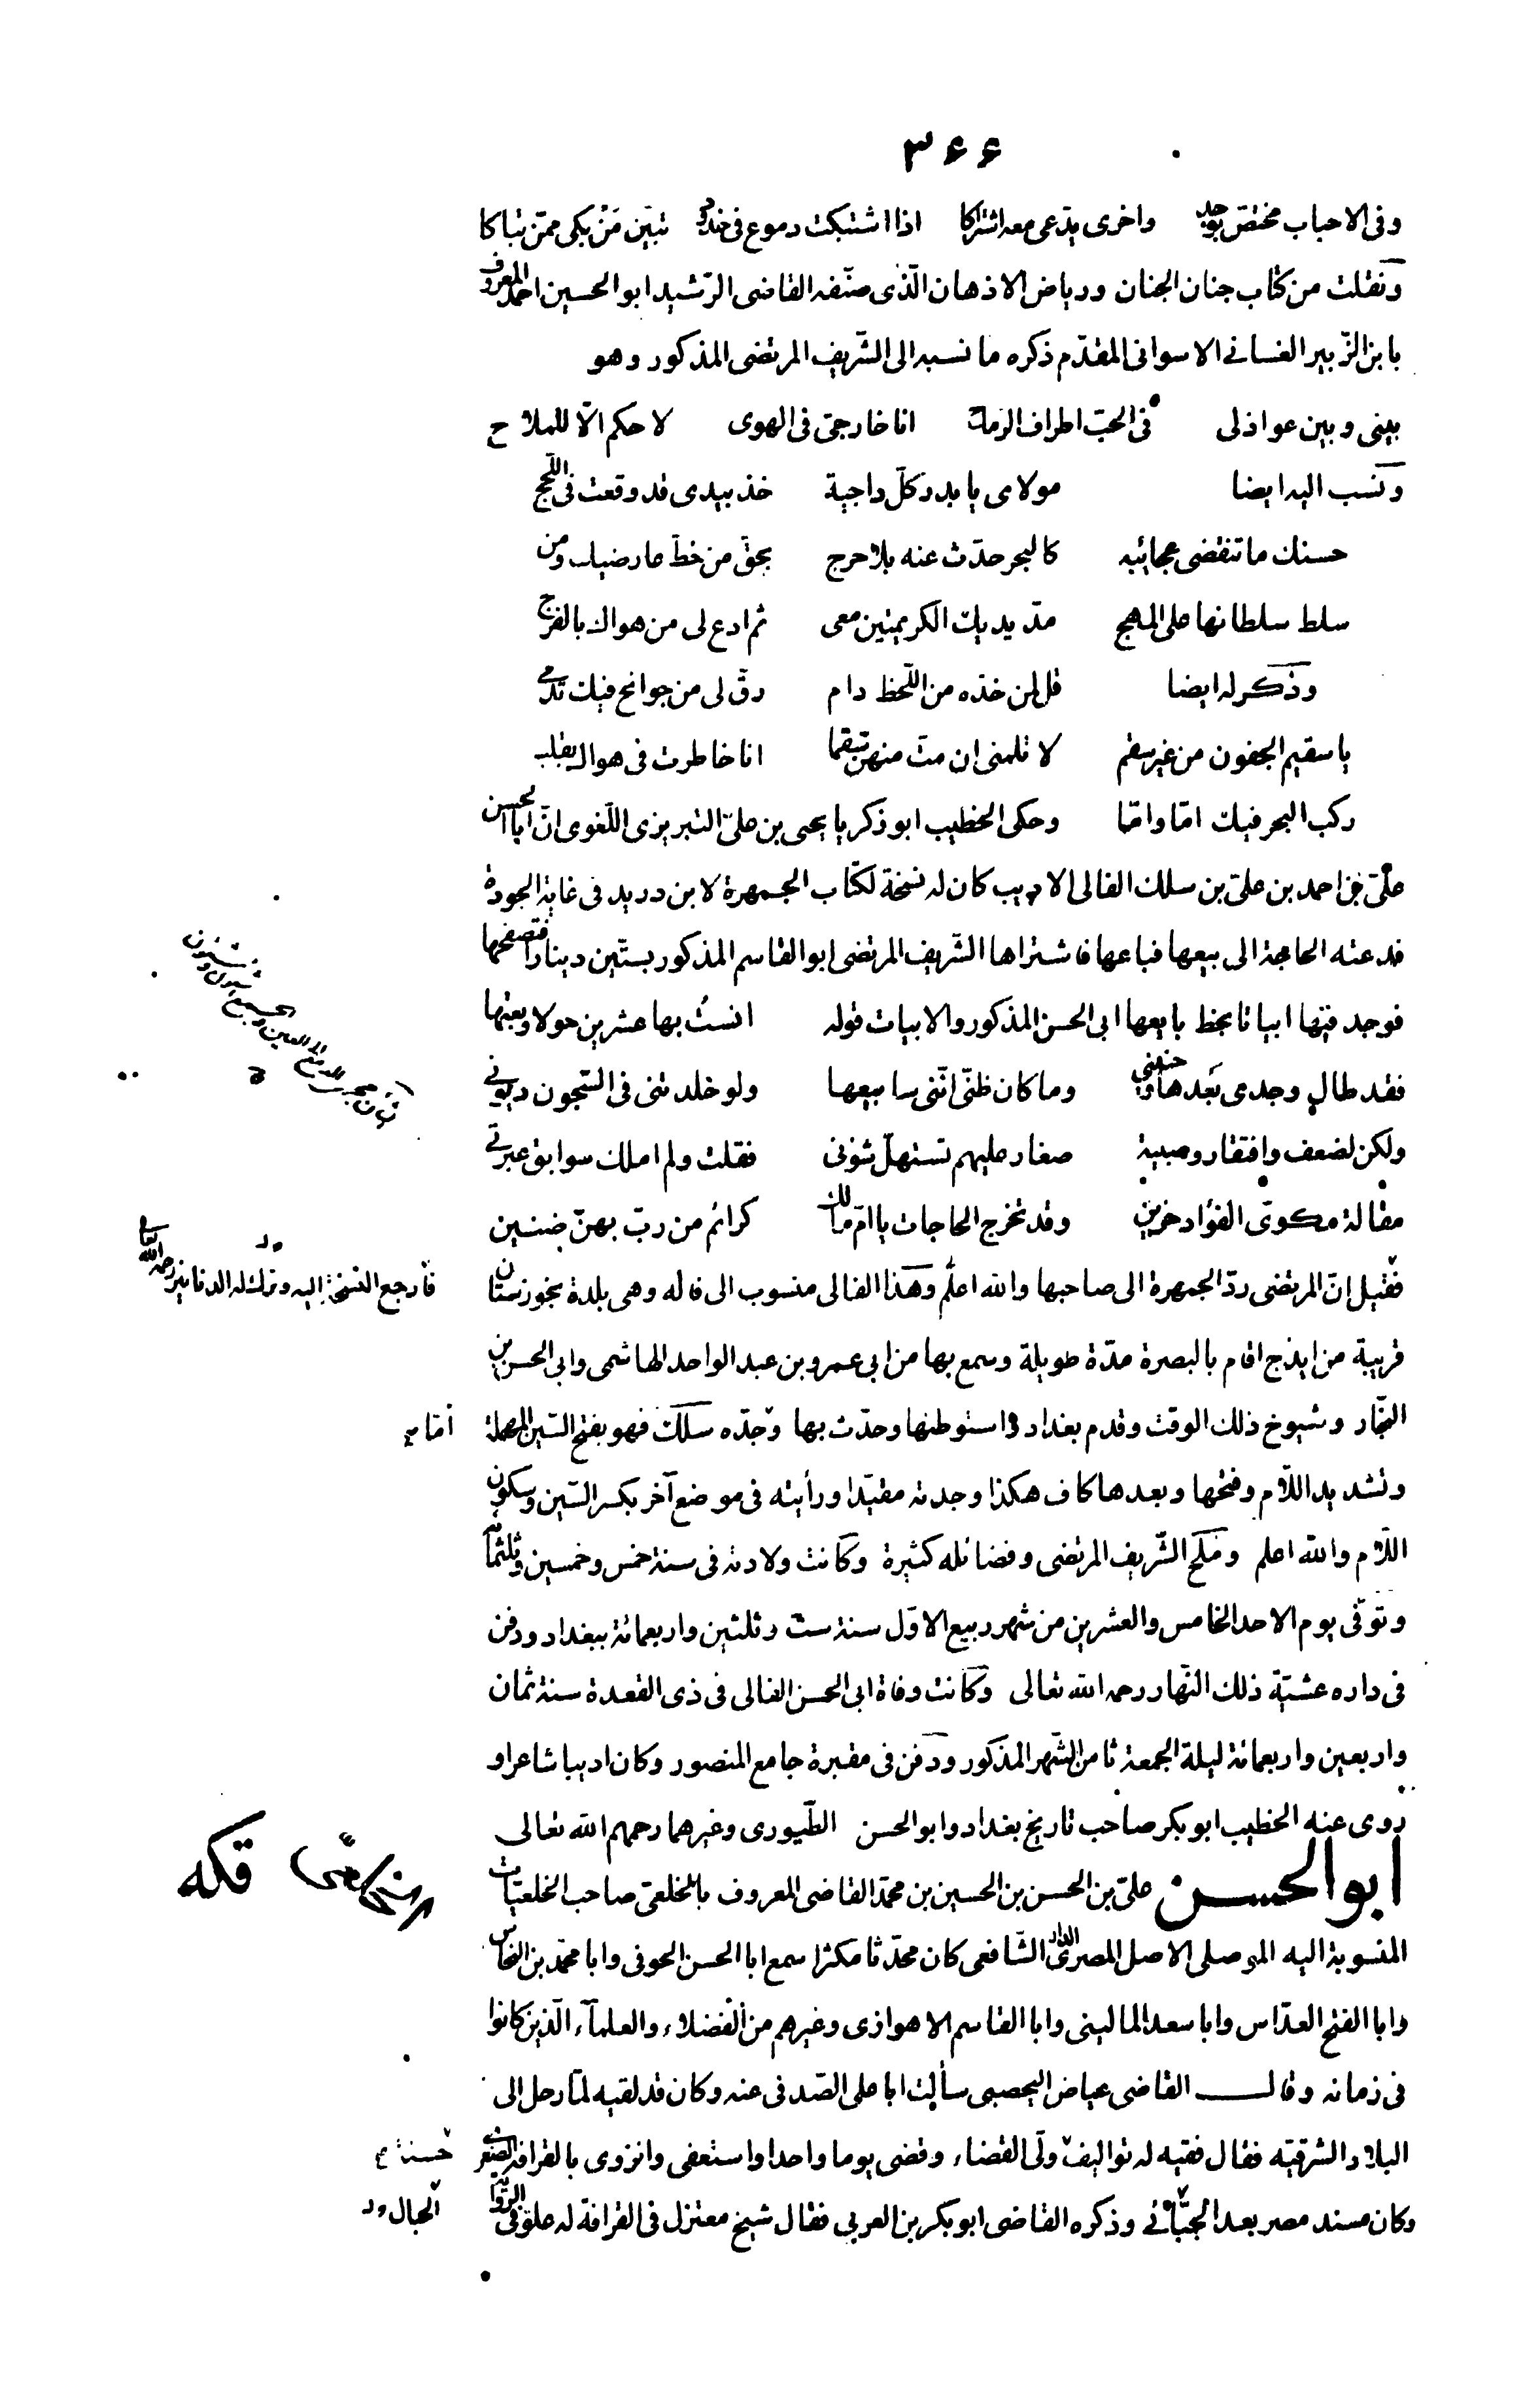 ٣٤٤
وفى الاحباب مختصّ بوجد واخرى يدّعى معه اشتراكا اذا اشتبكت دموع فى خدود تبيّن مَنْ بكى ممّن تباكا
ونقلت من كتاب جنان الجنان ورياض الاذهان الّذى صنّفه القاضى الرّشيد ابو الحسين احمد المعروف
بابن الزّبير الغسانى الاسوانى المقدّم ذكره ما نسبه الى الشّريف المرتضى المذكور وهو
بينى وبين عواذلى فى الحبّ اطراف الرماح انا خارجىّ فى الهوى لا حكم الّا للملاح
ونسب اليه ايضا مولاى يا بدر كلّ داجية خذ بيدى قد وقعت فى اللّجج
حسنك ما تنقضى عجائبه كالبحر حدّث عنه بلا حرج بحقّ من خطّ عارضيك ومن
سلط سلطانها على المهج مدّ يديك الكريمتين معى ثم ادع لى من هواك بالفرج
وذكر له ايضا قل لمن خدّه من اللّحظ دام رقّ لى من جوانح فيك تدمى
يا سقيم الجفون من غير سقم لا تلمنى ان متّ منهن سقما انا خاطرت فى هواك بقلب
ركب البحر فيك امّا وامّا وحكى الخطيب ابو زكريا يحيى بن علىّ التبريزى اللّغوى انّ ابا الحسن
علىّ بن احمد بن علىّ بن سلك الفالى الاديب كان له نسخة لكتاب الجمهرة لابن دريد فى غاية الجودة
فدعته الحاجة الى بيعها فباعها فاشتراها الشّريف المرتضى ابو القاسم المذكور بستّين دينارا فتصفحها
فوجد فيها ابياتا بخط بايعها ابى الحسن المذكور والابيات قوله انستُ بها عشرين حولا وبعتها
فقد طال وجدى بَعدها وحنينى وما كان ظنّى انّنى سابيعها ولو خلدتنى فى السّجون ديونى
ولكن لضعف وافتقار وصبية صغار عليهم تستهلّ شؤنى فقلت ولم املك سوابق عبرتى
مقالة مكوىّ الفؤاد حزين وقد تخرج الحاجات يا امّ مالك كرائم من ربّ بهنّ ضنين
فقيل انّ المرتضى ردّ الجمهرة الى صاحبها والله اعلم وهذا الفالى منسوب الى فاله وهى بلدة بخوزستان
فأرجع النسخة اليه وترك له الدنانير رحمه الله تعالى
قريبة من ايذج اقام بالبصرة مدّة طويلة وسمع بها من ابى عمرو بن عبد الواحد الهاشمى وابى الحسن بن
النجّار وشيوخ ذلك الوقت وقدم بغداد فاستوطنها وحدّث بها وجدّه سلك فهو بفتح السّين المهملة
أمّا
وتشديد اللّام وفتحها وبعدها كاف هكذا وجدته مقيّدا ورأيته فى موضع آخر بكسر السّين وسكون
اللّام والله اعلم ومُلَح الشّريف المرتضى وفضائله كثيرة وكانت ولادته فى سنة خمس وخمسين وثلثمائة
وتوفّى يوم الاحد الخامس والعشرين من شهر ربيع الاوّل سنة ست وثلثين واربعمائة ببغداد ودفن
فى داره عشيّة ذلك النّهار رحمه الله تعالى وكانت وفاة ابى الحسن الفالى فى ذى القعدة سنة ثمان
واربعين واربعمائة ليلة الجمعة ثامن الشّهر المذكور ودفن فى مقبرة جامع المنصور وكان اديبا شاعرا و
روى عنه الخطيب ابو بكر صاحب تاريخ بغداد وابو الحسن الطّيورى وغيرهما رحمهم الله تعالى
ابو الحسن علىّ بن الحسن بن الحسين بن محمّد القاضى المعروف بالخلعى صاحب الخلعيّات
المنسوبة اليه الموصلى الاصل المصرىّ الدار الشّافعى كان محدّثا مكثرا سمع ابا الحسن الحوفى وابا محمّد بن النحّاس
وابا الفتح العدّاس وابا سعد المالينى وابا القاسم الاهوازى وغيرهم من الفضلاء والعلمآء الّذين كانوا
فى زمانه وقال القاضى عياض اليحصبى سألت ابا على الصّدفى عنه وكان قد لقيه لمّا رحل الى
البلاد الشرقيّه فقال فقيه له تواليف ولّى القضاء وقضى يوما واحدا واستعفى وانزوى بالقرافة الصّغرى
حسنة
وكان مسند مصر بعد الجبّائى وذكره القاضى ابو بكر بن العربى فقال شيخ معتزل فى القرافة له علوّ فى الرواية
الحبال